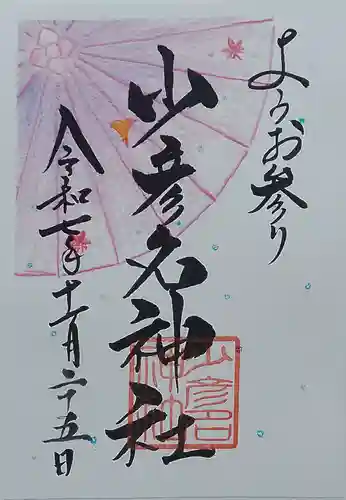 ようお参り
少彦名神社
令和七年十一月二十五日
少彦名神社